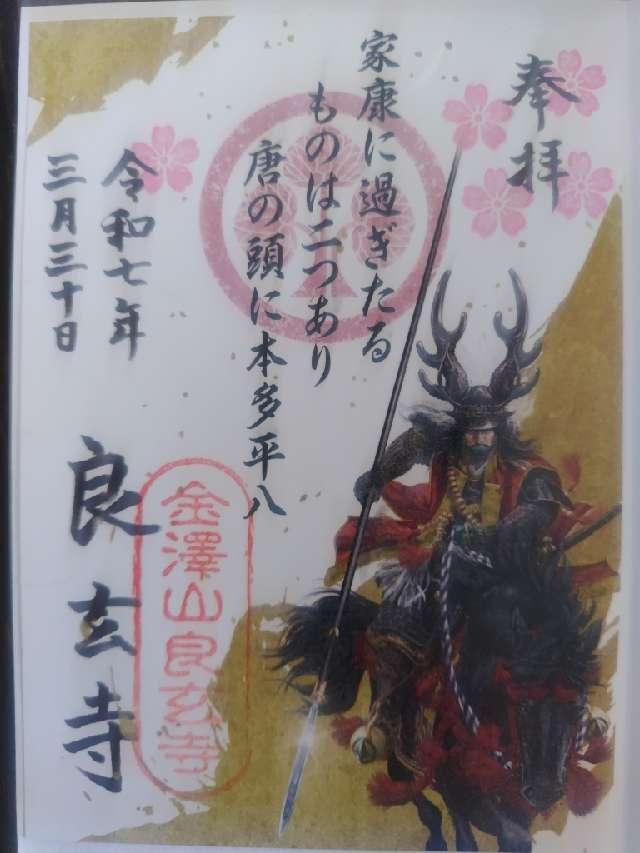 奉拝
家康に過ぎたる
ものは二つあり
唐の頭に本多平八
令和七年
三月三十日
良玄寺
金澤山良玄寺